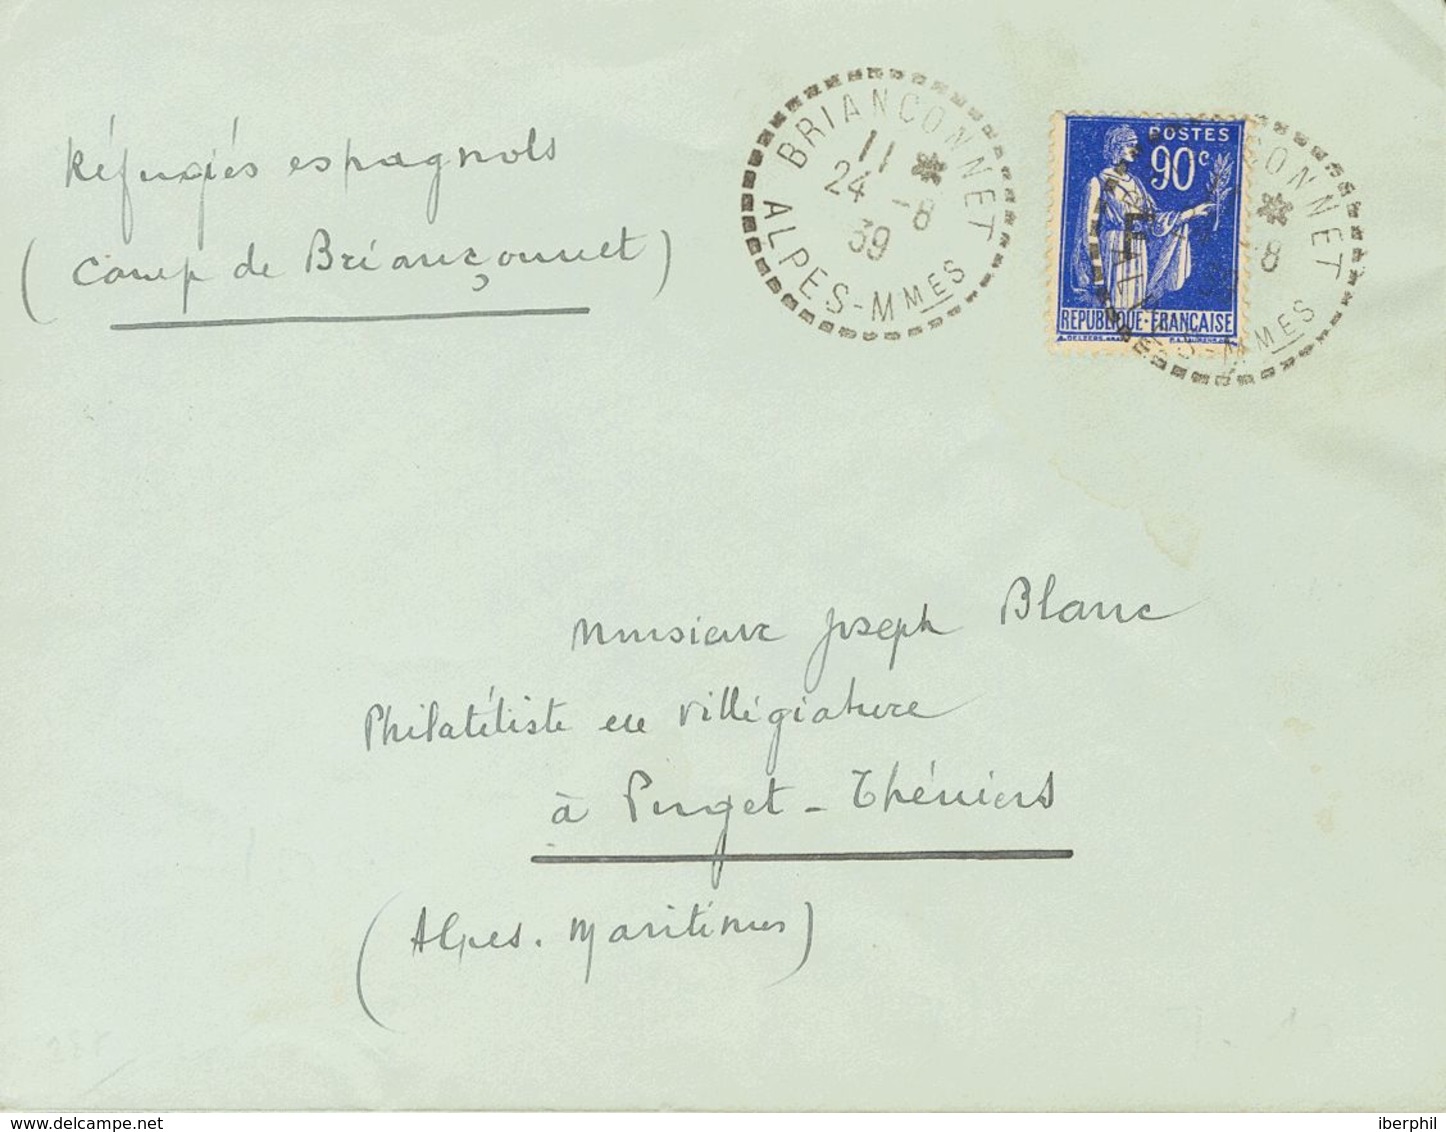 Réfugiés espagnols
(Camp de Briançonnet)
BRIANÇONNET
11 *
24 -8
39
ALPES-MMES
POSTES
90c
F
REPUBLIQUE·FRANCAISE
ONNET
* -8
MMES
Monsieur Joseph Blanc
Philatéliste en villégiature
à Puget-Théniers
(Alpes. Maritimes)
www.delcampe.net
iberphil